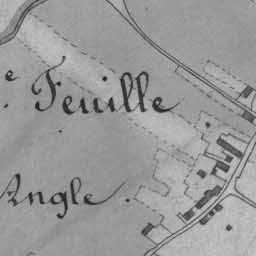 e Feuille
Angle.